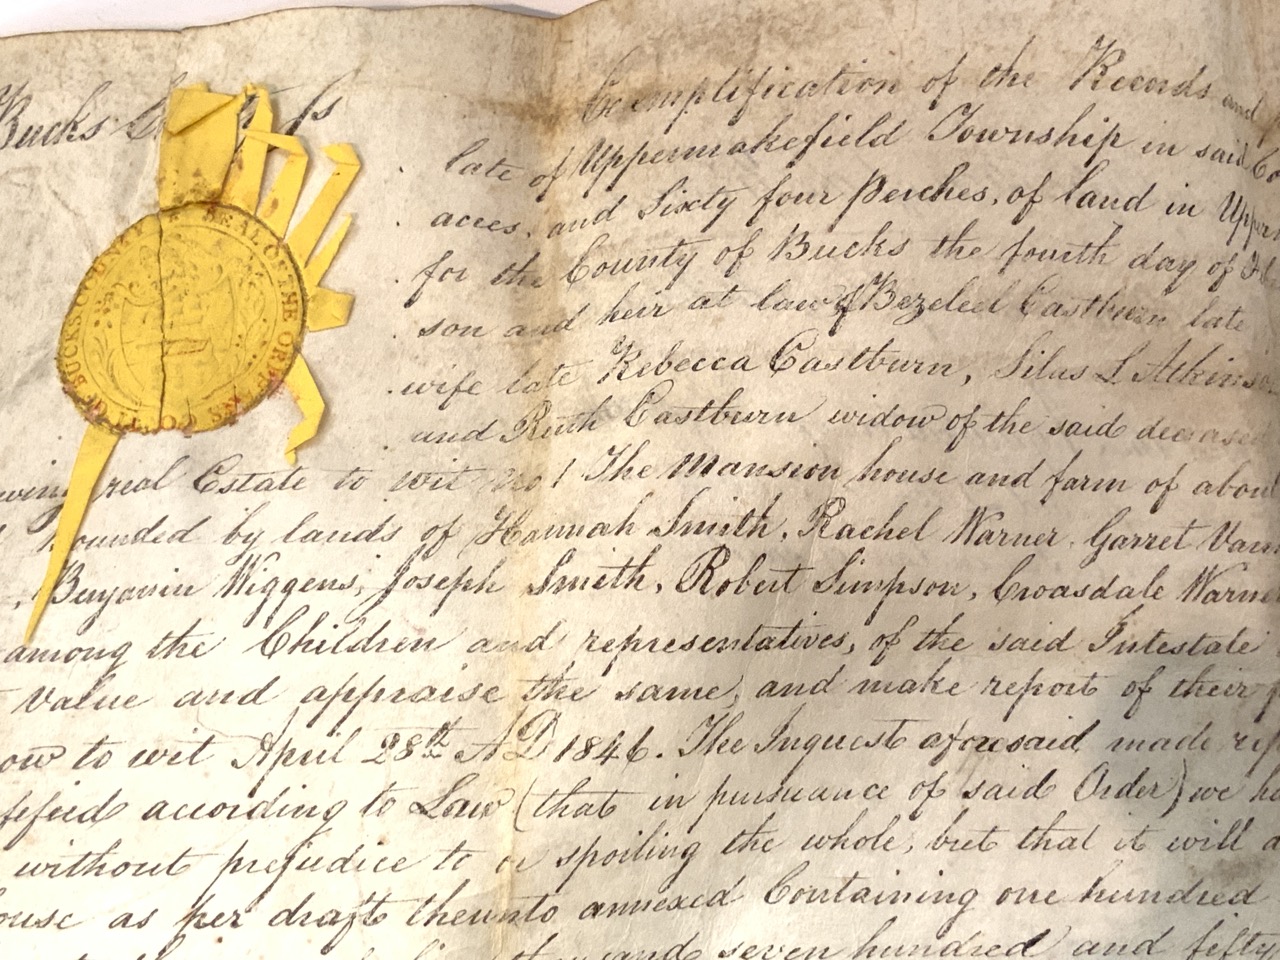 Bucks
Exemplification of the Records and
late of Uppermakefield Township in said Co
acres, and Sixty four Perches, of land in Upper
for the County of Bucks the fourth day of
son and heir at law of Bezeleel Eastburn late
wife late Rebecca Eastburn, Silas L Atkinso
and Ruth Eastburn widow of the said deceased
wing real Estate to wit No 1 The Mansion house and farm of about
bounded by lands of Hannah Smith, Rachel Warner, Garret Van
, Benjamin Wiggens, Joseph Smith, Robert Simpson, Croasdale Warne
among the Children and representatives, of the said Intestate
value and appraise the same, and make report of their
ow to wit April 28th AD 1846. The Inquest aforesaid made rep
ffied according to Law (that in pursuance of said Order) we ha
without prejudice to or spoiling the whole, but that it will a
ouse as per draft thereunto annexed Containing one hundred
thousand seven hundred and fifty
SEAL OF THE ORPHANS COURT OF BUCKS COUNTY